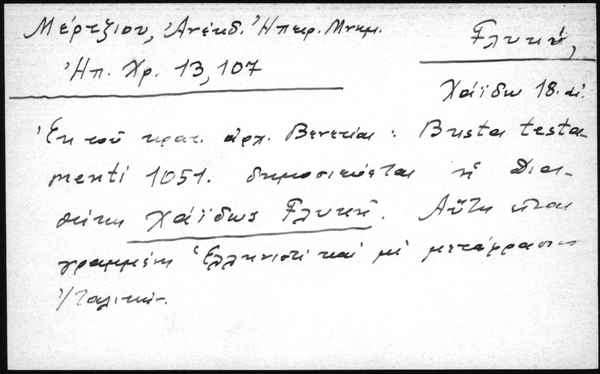 Μέρτζιου, Ἀνέκδ. Ἠπειρ. Μνημ.
Γλυκή,
Ἠπ. Χρ. 13, 107
Χάϊδω 18. αἰ.
Ἐκ τοῦ κρατ. ἀρχ. Βενετίας : Busta testa-
menti 1051. δημοσιεύεται ἡ Δια-
θήκη Χάϊδως Γλυκῆ. Αὕτη εἶναι
γραμμένη Ἑλληνιστὶ καὶ μὲ μετάφρασιν
Ἰταλικήν.